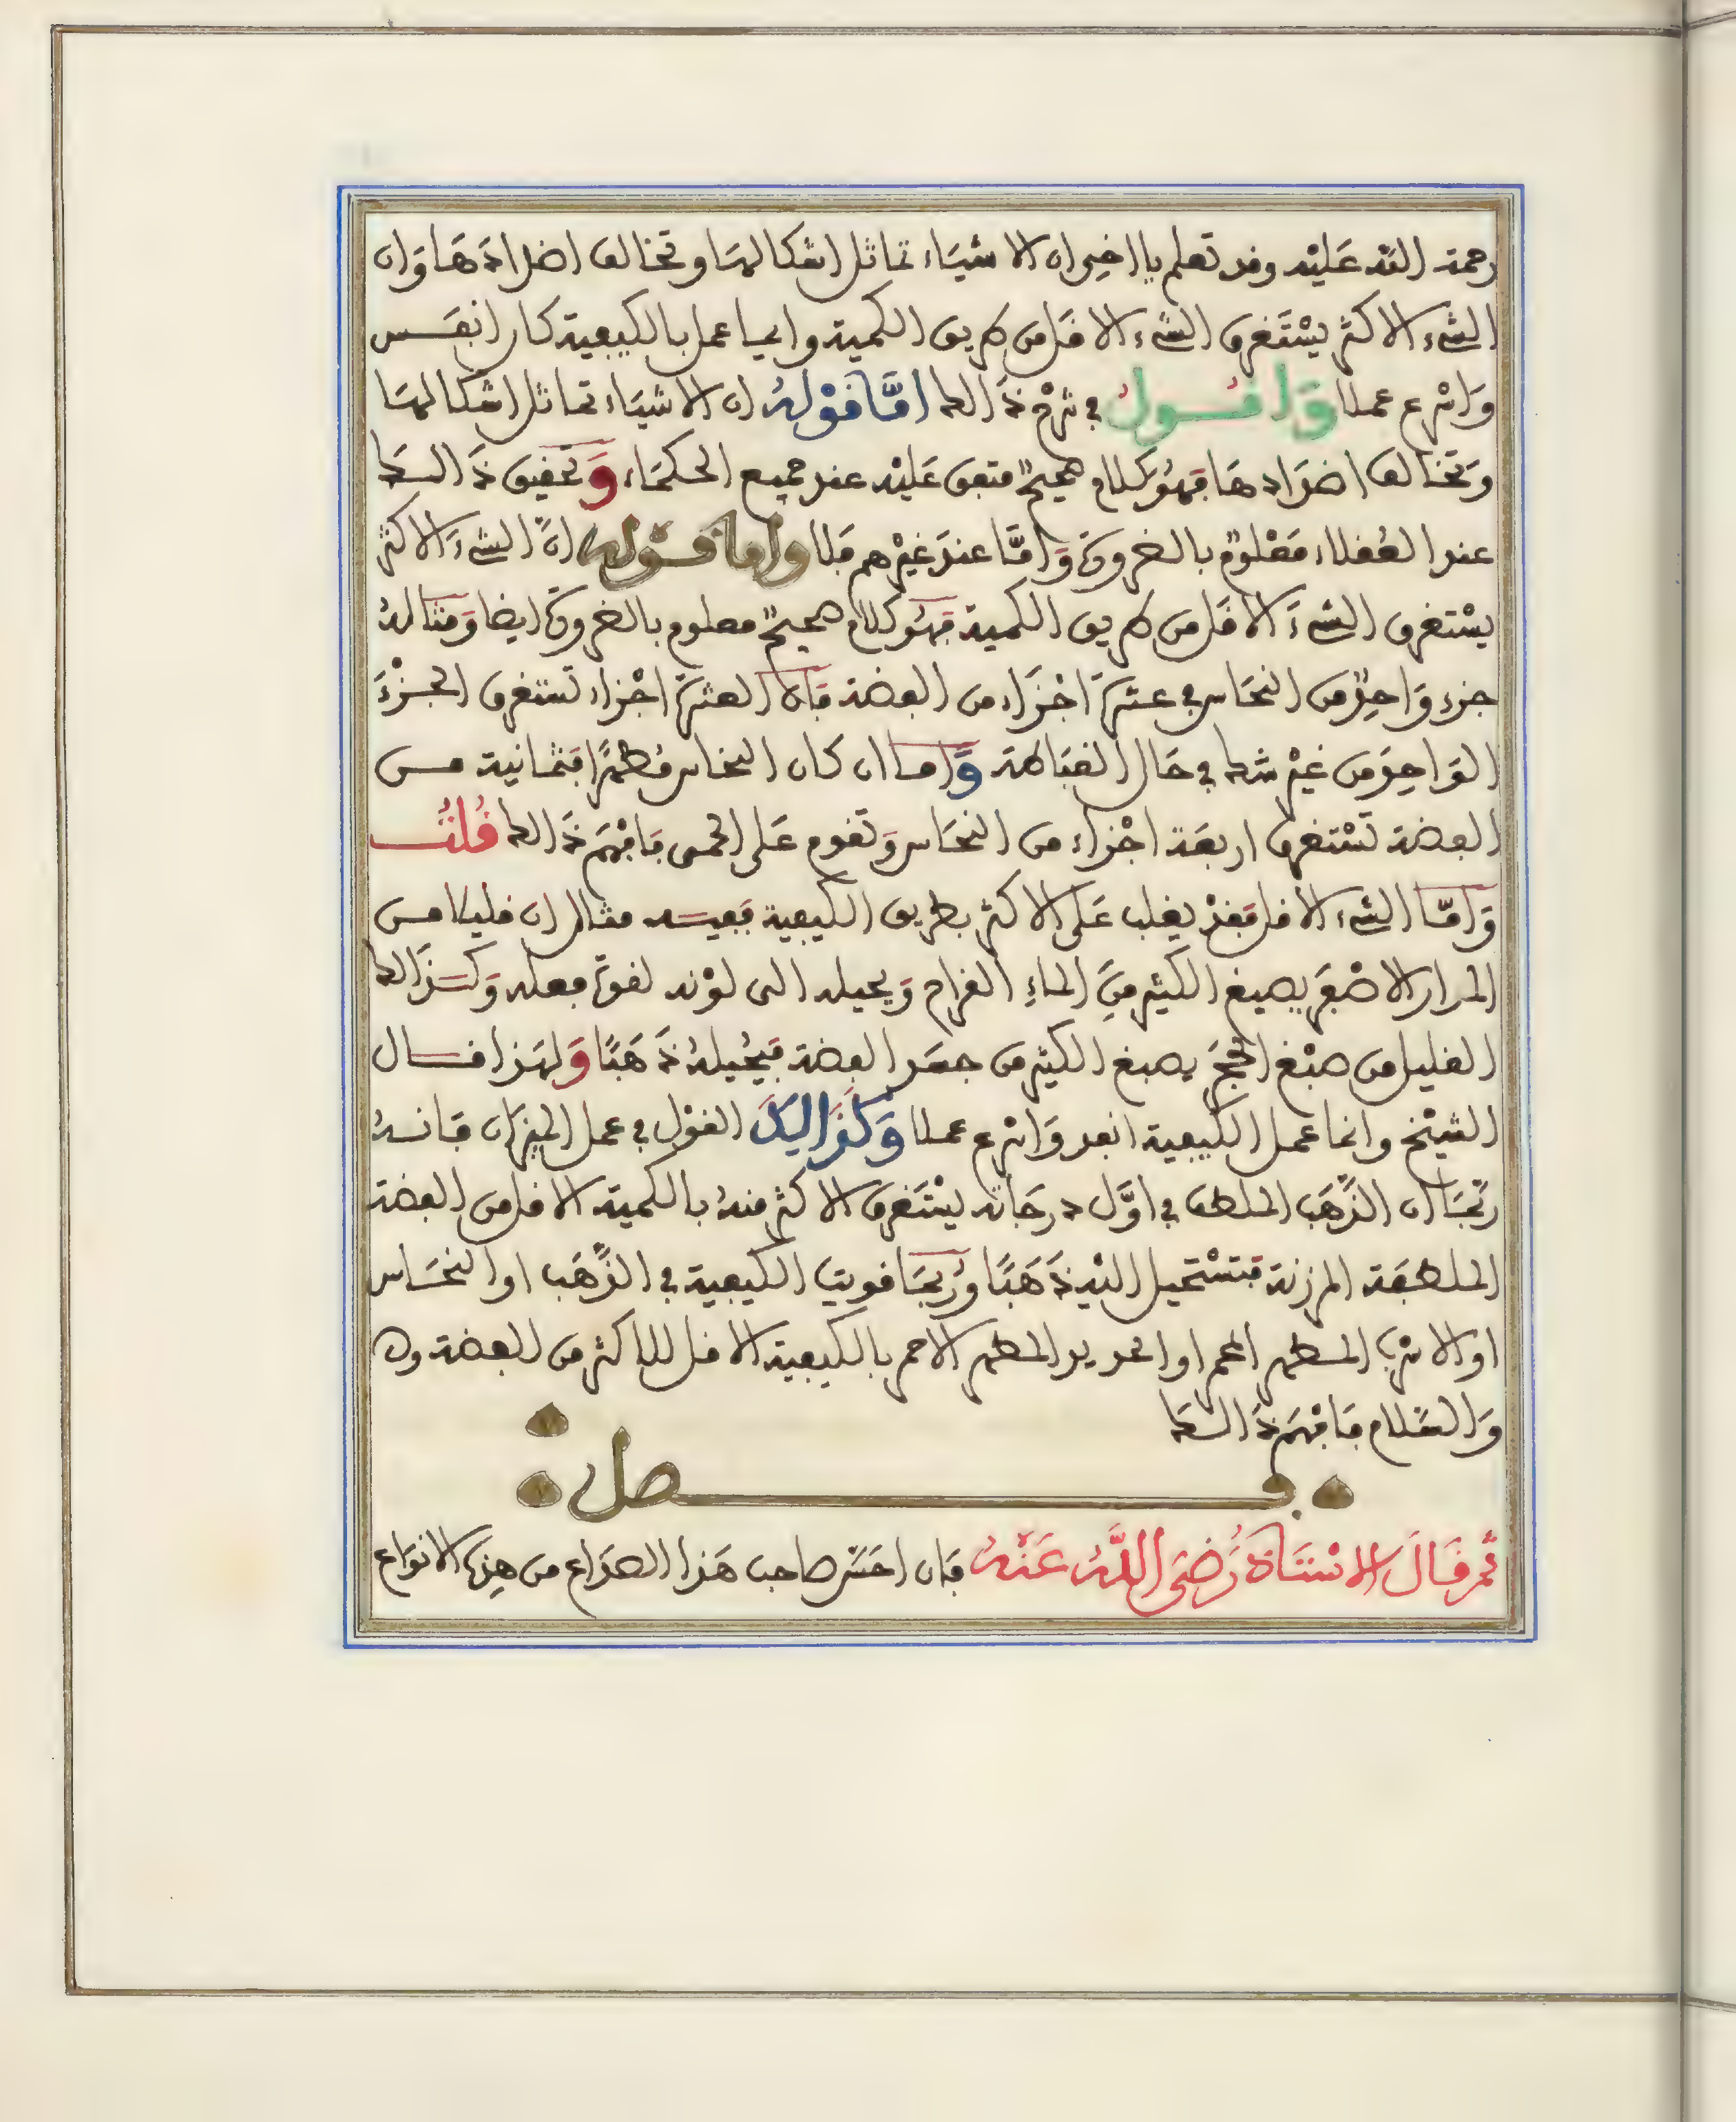 رحمة الله عليه وقد تعلم يا اخى ان الاشياء تماثل اشكالها وتخالف اضدادها وان
الشىء الاكثر يستغرق الشىء الاقل من طريق الكمية وايما عمل بالكيفية كان انفس
واسرع عملا واقول في شرح ذالك اما قوله ان الاشياء تماثل اشكالها
وتخالف اضدادها فهو كلام صحيح متفق عليه عند جميع الحكماء وتحقيق ذالك
عند العقلاء معلوم بالضرورة واما عند غيرهم فلا واما قوله ان الشىء الاكثر
يستغرق الشىء الاقل من طريق الكمية فهو كلام صحيح معلوم بالضرورة ايضا ومثاله
جزء واحد من النحاس في عشرة اجزاء من الفضة فان العشرة اجزاء تستغرق الجزء
الواحد من غير شك في حال واما ان كان النحاس مطهرا فثمانية من
الفضة تستغرق اربعة اجزاء من النحاس وتقوم على الحمى فافهم ذالك قلت
واما الشىء الاقل فقد يغلب على الاكثر بطريق الكيفية مثال ان قليلا من
المرار الاصفر يصبغ الكثير من الماء القراح ويحيله الى لونه لقوة فعله وكذالك
القليل من صبغ الحجر يصبغ الكثير من جسد الفضة فيحيله ذهبا ولهذا قال
الشيخ وانما عمل الكيفية انفد واسرع عملا وكذالك القول في عمل الميزان فانه
ربما ان الذهب الملطف في اول درجاته يستغرق الاكثر منه بالكمية الاقل من الفضة
الملطفة المرزنة فتستحيل اليه ذهبا وربما قويت الكيفية في الذهب او النحاس
او الاسرب المطهر المحمر او الحديد المطهر الاحمر بالكيفية الاقل للاكثر من الفضة
والسلام فافهم ذالك
فصل
ثم قال الاستاذ رضى الله عنه فان احسن صاحب هذا من هذه الانواع